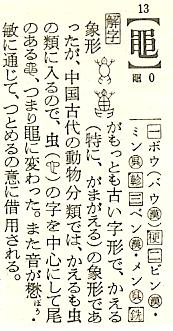 13
【黽】 0
一ボウ(バウ)漢・梗 二ビン漢・
ミン呉 軫 三ベン漢・メン呉 銑
解字
象形
がもっとも古い字形で、かえる
(特に、がまがえる)の象形であ
ったが、中国古代の動物分類では、かえるも虫
の類に入るので、虫()の字を中心にして尾
のある、つまり黽に変わった。また音が懋ぼう・
敏に通じて、つとめるの意に借用される。